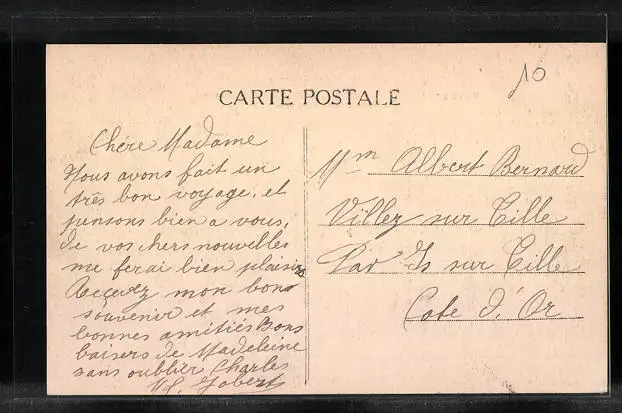 10
CARTE POSTALE
Chère Madame
Nous avons fait un
très bon voyage, et
pensons bien a vous,
de vos chers nouvelles
me ferai bien plaisir
Recevez mon bons
souvenir et mes
bonnes amitiés Bons
baisers de Madeleine
sans oublier Charles
M. Jobert
Mm Albert Bernard
Villey sur Tille
Par Is sur Tille
Cote d'Or